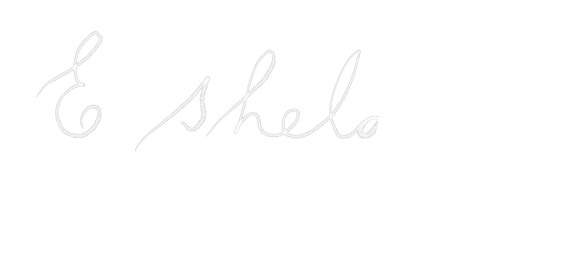 E shelo